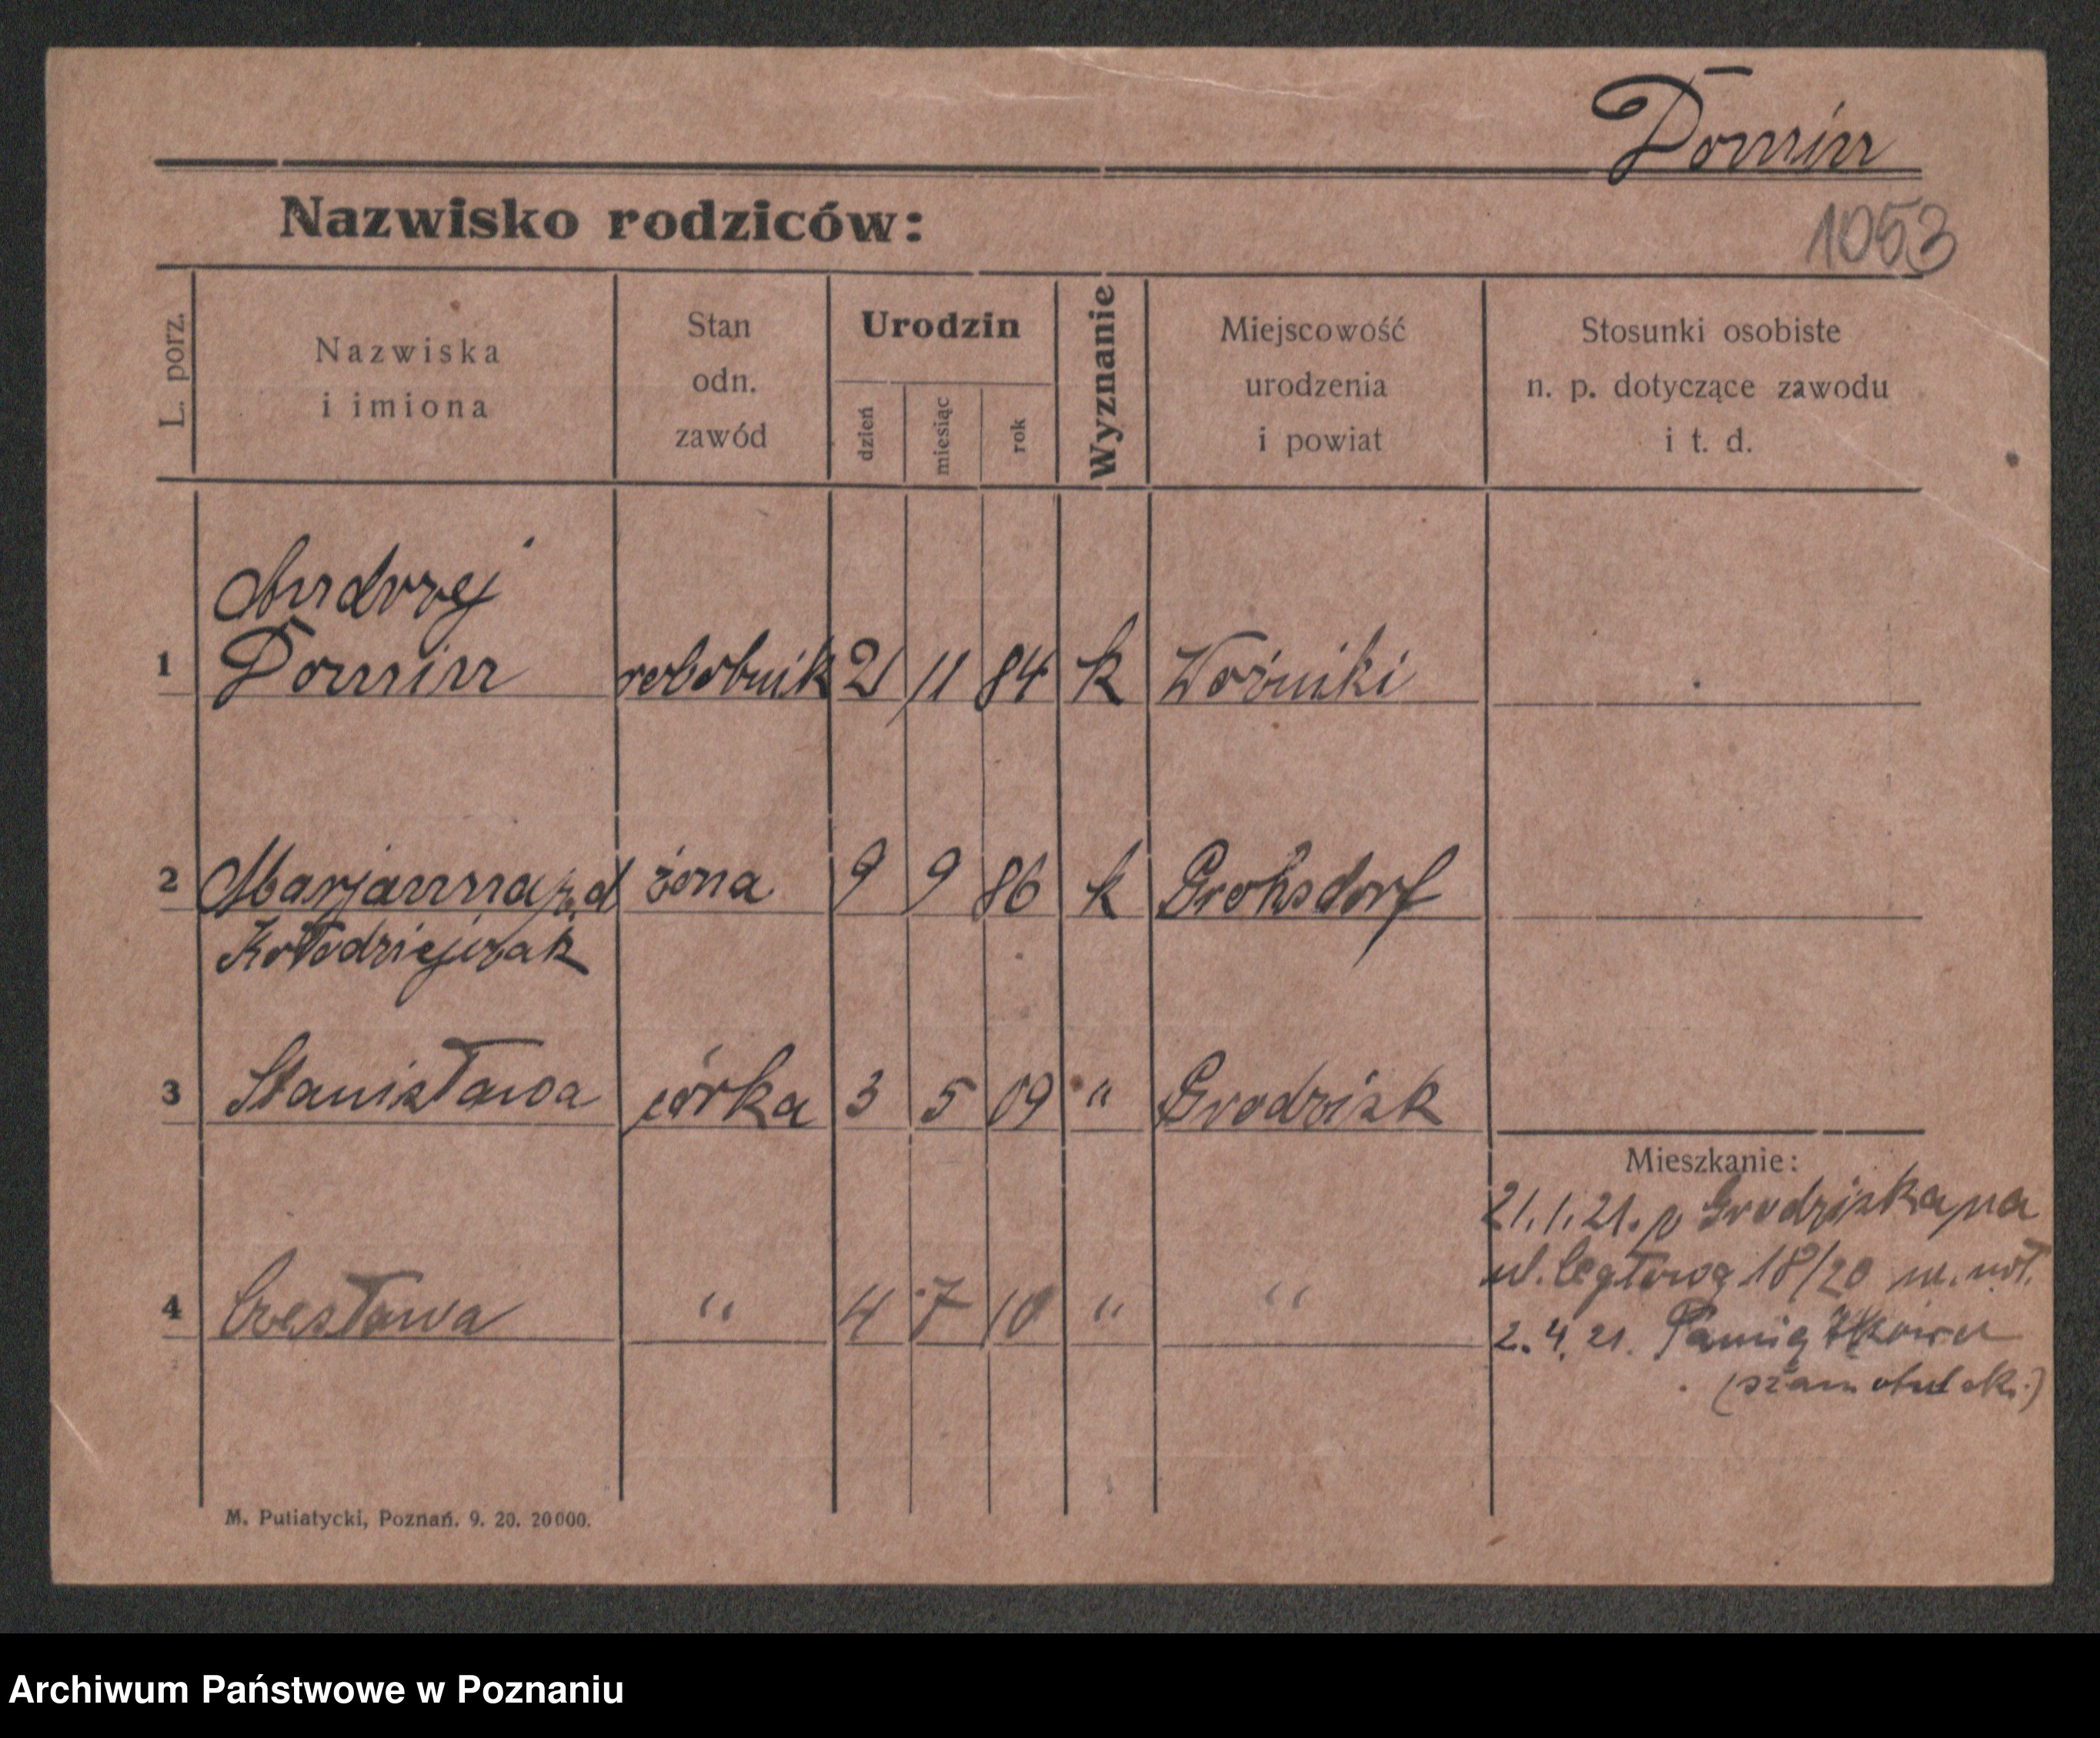 Domin
Nazwisko rodziców:
1053
L. porz.
Nazwiska
i imiona
Stan
odn.
zawód
Urodzin
dzień
miesiąc
rok
Wyznanie
Miejscowość
urodzenia
i powiat
Stosunki osobiste
n. p. dotyczące zawodu
i t. d.
Andrzej
1 Domin robotnik 21 11 84 k Woźniki
2 Marjanna z d żona 9 9 86 k Grohsdorf
Kołodziejczak
3 Stanisława córka 3 5 09 " Grodzisk
Mieszkanie:
21.1.21. p Grodziska na
ul. 18/20
4 Czesława " 4 7 10 " "
2.4.21. Pamiątkowa
(szamotulski)
M. Putiatycki, Poznań. 9. 20. 20000.
Archiwum Państwowe w Poznaniu